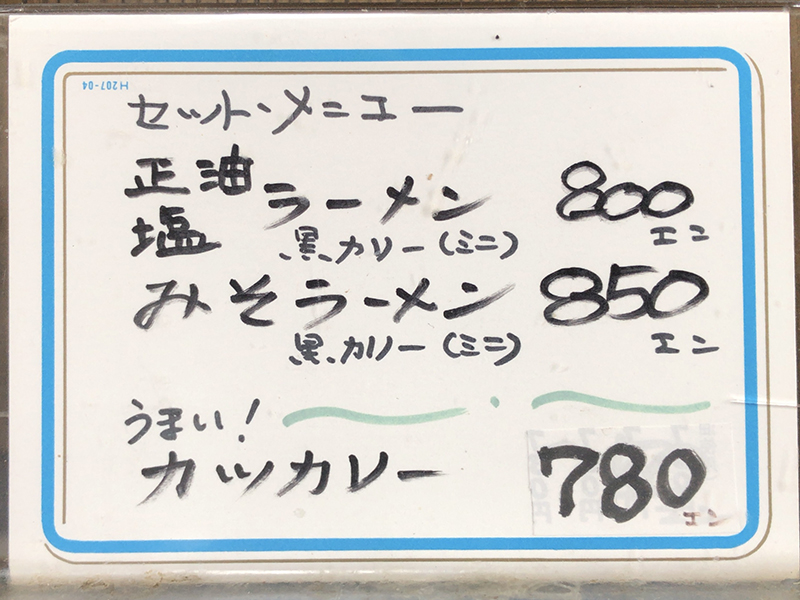 H207-04
セット・メニュー
正油 ラーメン 800
塩
黒カレー(ミニ) エン
みそラーメン 850
黒カレー(ミニ) エン
うまい!
カツカレー 780
エン